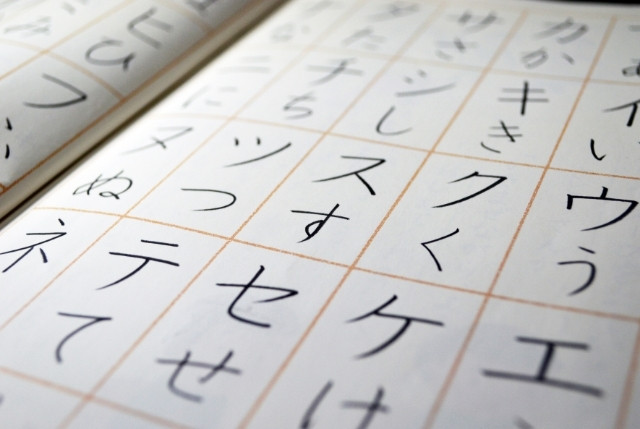 あイいウうエ
カかキきクくケけ
サさシしスすセせ
タたチちツつテて
なニにヌぬネ
ヒひフ